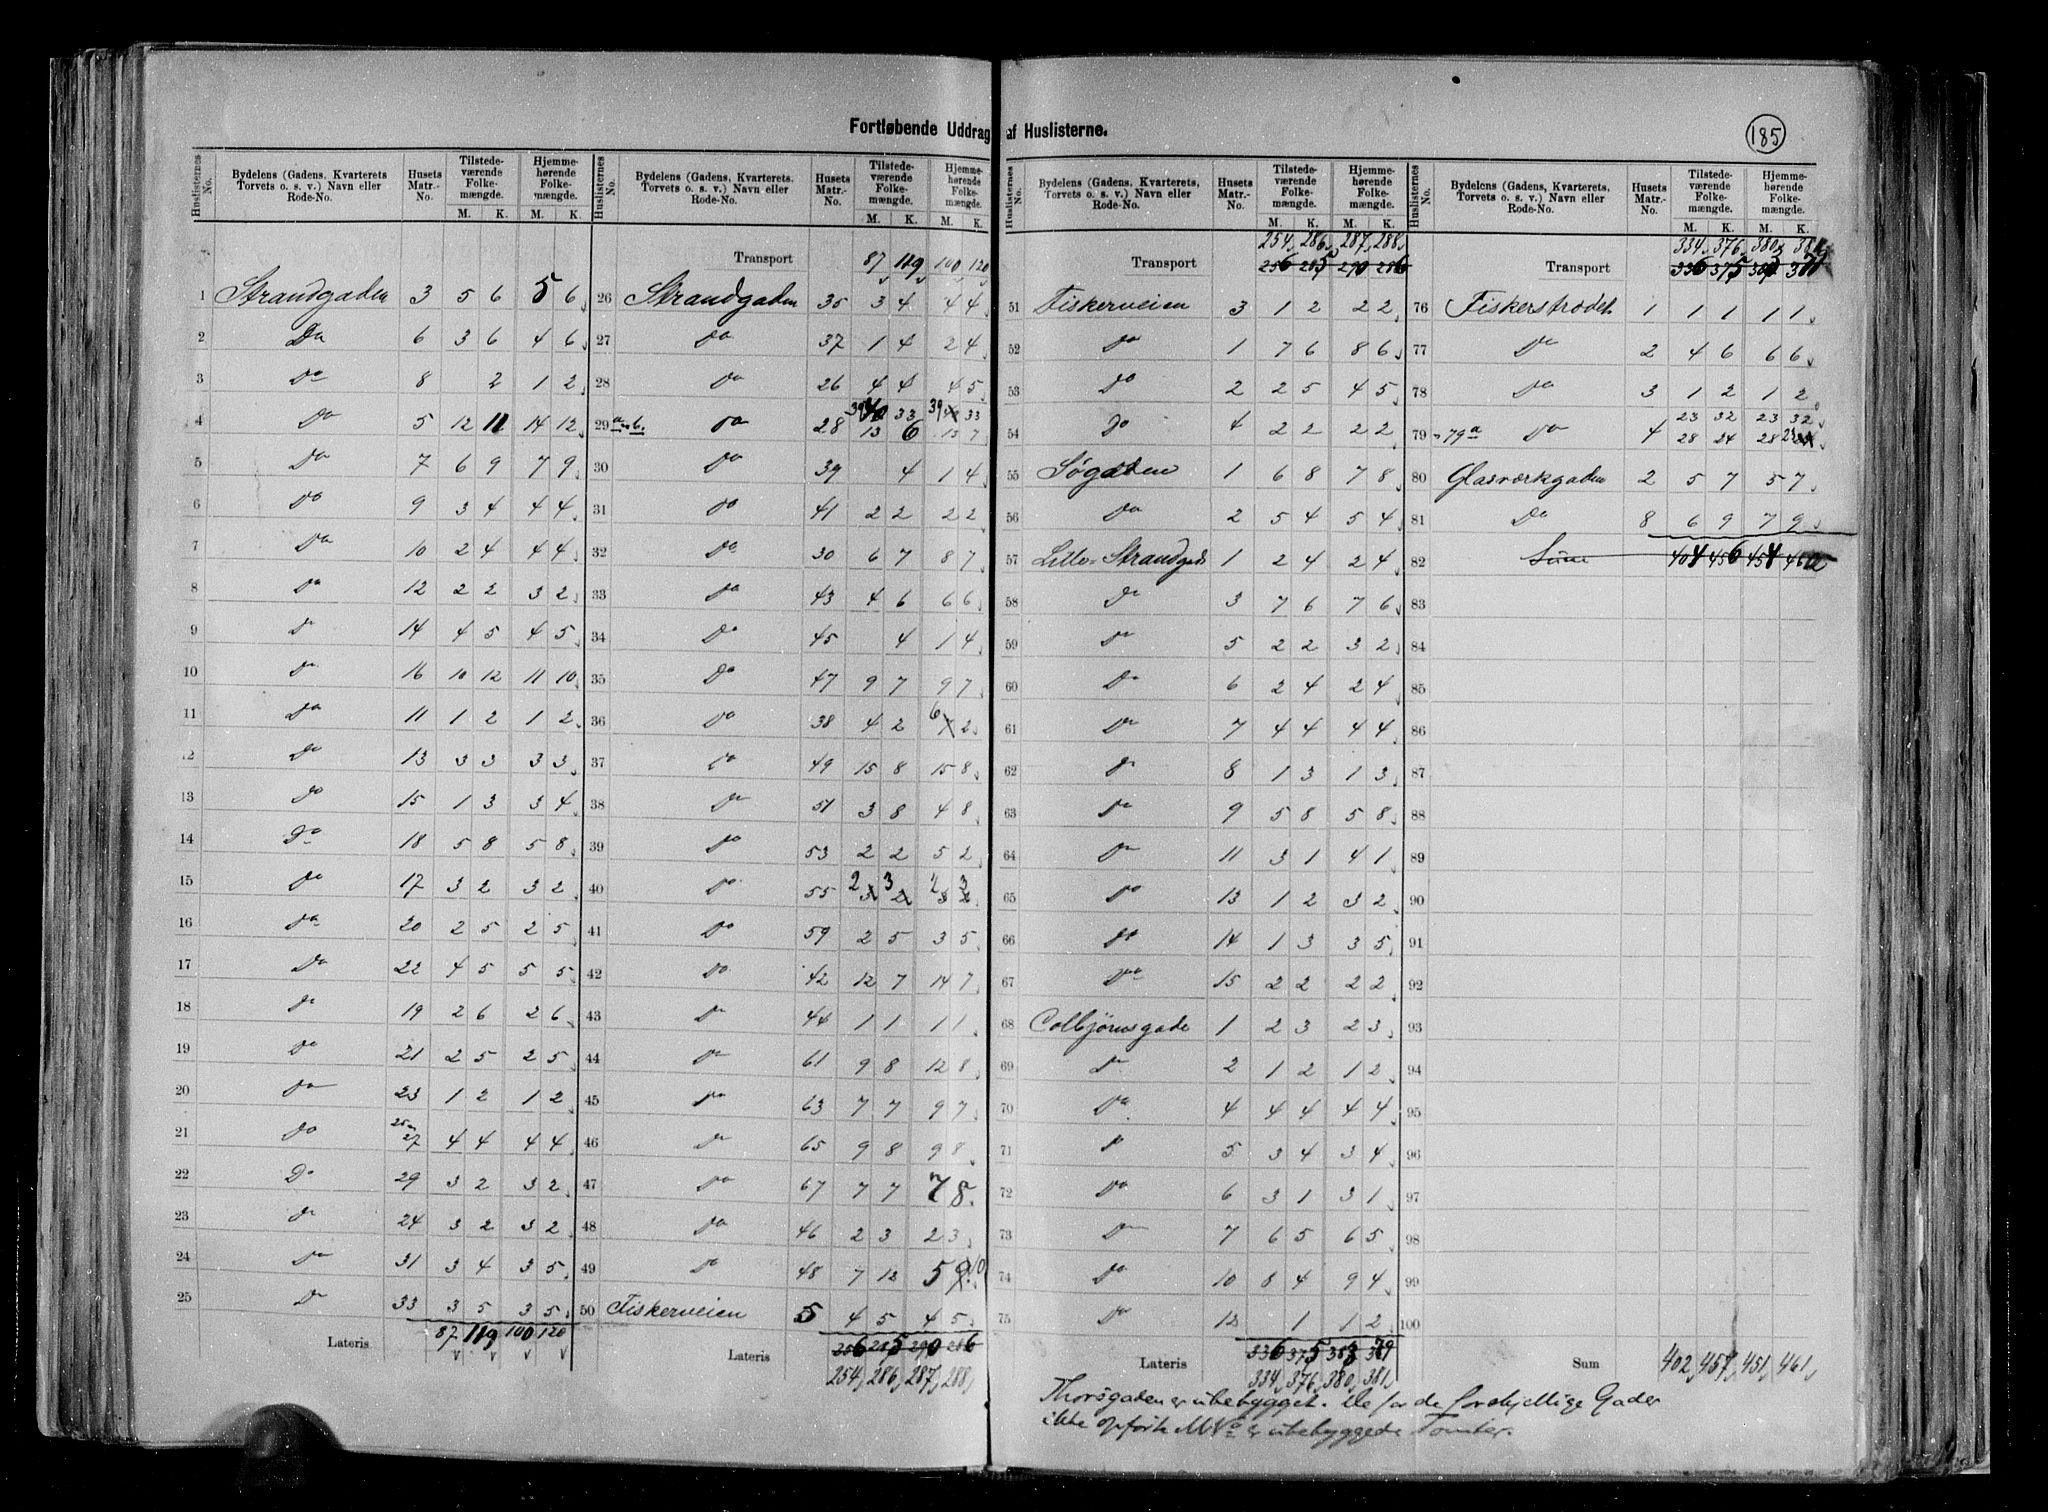 Fortløbende Uddrag af Huslisterne.
185
Huslisternes No. | Bydelens (Gadens, Kvarterets Torvets o. s. v.) Navn eller Rode-No. | Husets Matr.-No. | Tilstedeværende Folkemængde. M. K. | Hjemmehørende Folkemængde. M. K.
1 Strandgaden 3 5 6 5 6
2 Do 6 3 6 4 6
3 Do 8 2 1 2
4 Do 5 12 11 14 12
5 Do 7 6 9 7 9
6 Do 9 3 4 4 4
7 Do 10 2 4 4 4
8 Do 12 2 2 3 2
9 Do 14 4 5 4 5
10 Do 16 10 12 11 10
11 Do 11 1 2 1 2
12 Do 13 3 3 3 3
13 Do 15 1 3 3 4
14 Do 18 5 8 5 8
15 Do 17 3 2 3 2
16 Do 20 2 5 2 5
17 Do 22 4 5 5 5
18 Do 19 2 6 2 6
19 Do 21 2 5 2 5
20 Do 23 1 2 1 2
21 Do 25 27 4 4 4 4
22 Do 29 3 2 3 2
23 Do 24 3 2 3 2
24 Do 31 3 4 3 5
25 Do 33 3 5 3 5
Lateris 87 119 100 120
Huslisternes No. | Bydelens (Gadens, Kvarterets, Torvets o. s. v.) Navn eller Rode-No. | Husets Matr.-No. | Tilstedeværende Folkemængde. M. K. | Hjemmehørende Folkemængde. M. K.
Transport 87 119 100 120
26 Strandgaden 35 3 4 4 4
27 Do 37 1 4 2 4
28 Do 26 4 4 4 5
39 40 33 39 40 33
29 a b. Do 28 13 6 13 7
30 Do 39 4 1 4
31 Do 41 2 2 2 2
32 Do 30 6 7 8 7
33 Do 43 4 6 6 6
34 Do 45 4 1 4
35 Do 47 9 7 9 7
36 Do 38 4 2 6 2
37 Do 49 15 8 15 8
38 Do 51 3 8 4 8
39 Do 53 2 2 5 2
40 Do 55 2 3 2 3
41 Do 59 2 5 3 5
42 Do 42 12 7 14 7
43 Do 44 1 1 1 1
44 Do 61 9 8 12 8
45 Do 63 7 7 9 7
46 Do 65 9 8 9 8
47 Do 67 7 7 7 8
48 Do 46 2 3 2 3
49 Do 48 7 12 5 10
50 Fiskerveien 5 4 5 4 5
Lateris 256 285 290 286
254 286 287 288
Huslisternes No. | Bydelens (Gadens, Kvarterets, Torvets o. s. v.) Navn eller Rode-No. | Husets Matr.-No. | Tilstedeværende Folkemængde. M. K. | Hjemmehørende Folkemængde. M. K.
254 286 287 288
Transport 256 285 290 286
51 Fiskerveien 3 1 2 2 2
52 Do 1 7 6 8 6
53 Do 2 2 5 4 5
54 Do 4 2 2 2 2
55 Søgaden 1 6 8 7 8
56 Do 2 5 4 5 4
57 Lille Strandgade 1 2 4 2 4
58 Do 3 7 6 7 6
59 Do 5 2 2 3 2
60 Do 6 2 4 2 4
61 Do 7 4 4 4 4
62 Do 8 1 3 1 3
63 Do 9 5 8 5 8
64 Do 11 3 1 4 1
65 Do 13 1 2 3 2
66 Do 14 1 3 3 5
67 Do 15 2 2 2 2
68 Colbjørnsgade 1 2 3 2 3
69 Do 2 1 2 1 2
70 Do 4 4 4 4 4
71 Do 5 3 4 3 4
72 Do 6 3 1 3 1
73 Do 7 6 5 6 5
74 Do 10 8 4 9 4
75 Do 12 1 1 2
Lateris 336 375 383 379
334 376 380 381
Huslisternes No. | Bydelens (Gadens, Kvarterets, Torvets o. s. v.) Navn eller Rode-No. | Husets Matr.-No. | Tilstedeværende Folkemængde. M. K. | Hjemmehørende Folkemængde. M. K.
334 376 380 381
Transport 336 375 383 379
76 Fiskerstrædet 1 1 1 1 1
77 Do 2 4 6 6 6
78 Do 3 1 2 1 2
23 32 23 32
79 79a Do 4 28 24 28 23
80 Glasværkgaden 2 5 7 5 7
81 Do 8 6 9 7 9
82 Sum 404 456 454 460
83
84
85
86
87
88
89
90
91
92
93
94
95
96
97
98
99
100
Sum 402 457 451 461
Thorsgaden er ubebygget. De for de forskjellige Gader
ikke opførte M No er ubebyggede Tomter.